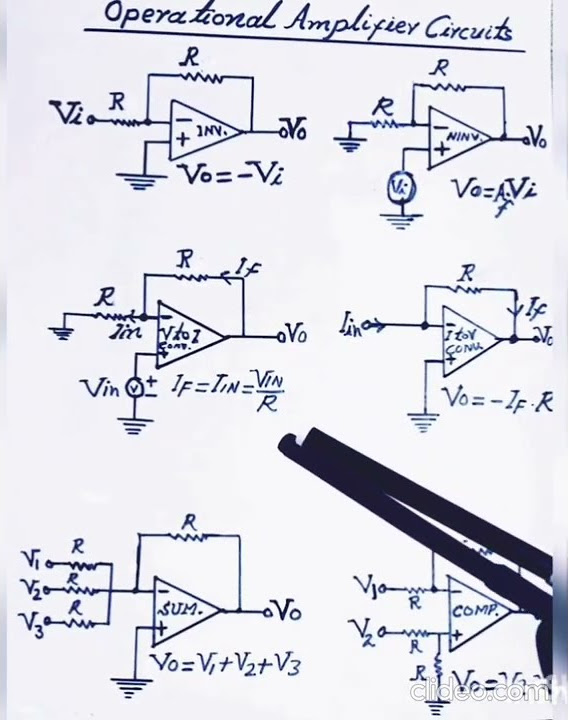 Operational Amplifier Circuits
R
Vi R - INV. + Vo
Vo = -Vi
R
R - NINV. + Vo
Vi
Vo = Af.Vi
R If
R Iin - V to I CONV. + Vo
Vin V + -
IF = IIN = VIN/R
R
Iin - I to V CONV. + If Vo
Vo = -IF.R
R
V1 R
V2 R - SUM. + Vo
V3 R
Vo = V1+V2+V3
V1 R - COMP. +
V2 R
R
Vo =
clideo.com